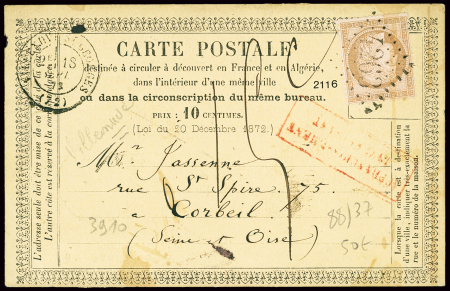 CARTE POSTALE
destinée à circuler à découvert en France et en Algérie,
dans l'intérieur d'une même ville
ou dans la circonscription du même bureau.
PRIX : 10 CENTIMES.
(Loi du 20 Décembre 1872.)
2116
18
(72)
Mr Jassenne
rue St Spire 75
à Corbeil
(Seine et Oise)
15
3910
88/37
50€
AFFRANCHISSEMENT
L'adresse seule doit être mise de ce côté de la carte.
L'autre côté est réservé à la correspondance.
Lorsque la carte est à destination
d'une ville, indiquer très-exactement la
rue et le numéro de la maison.